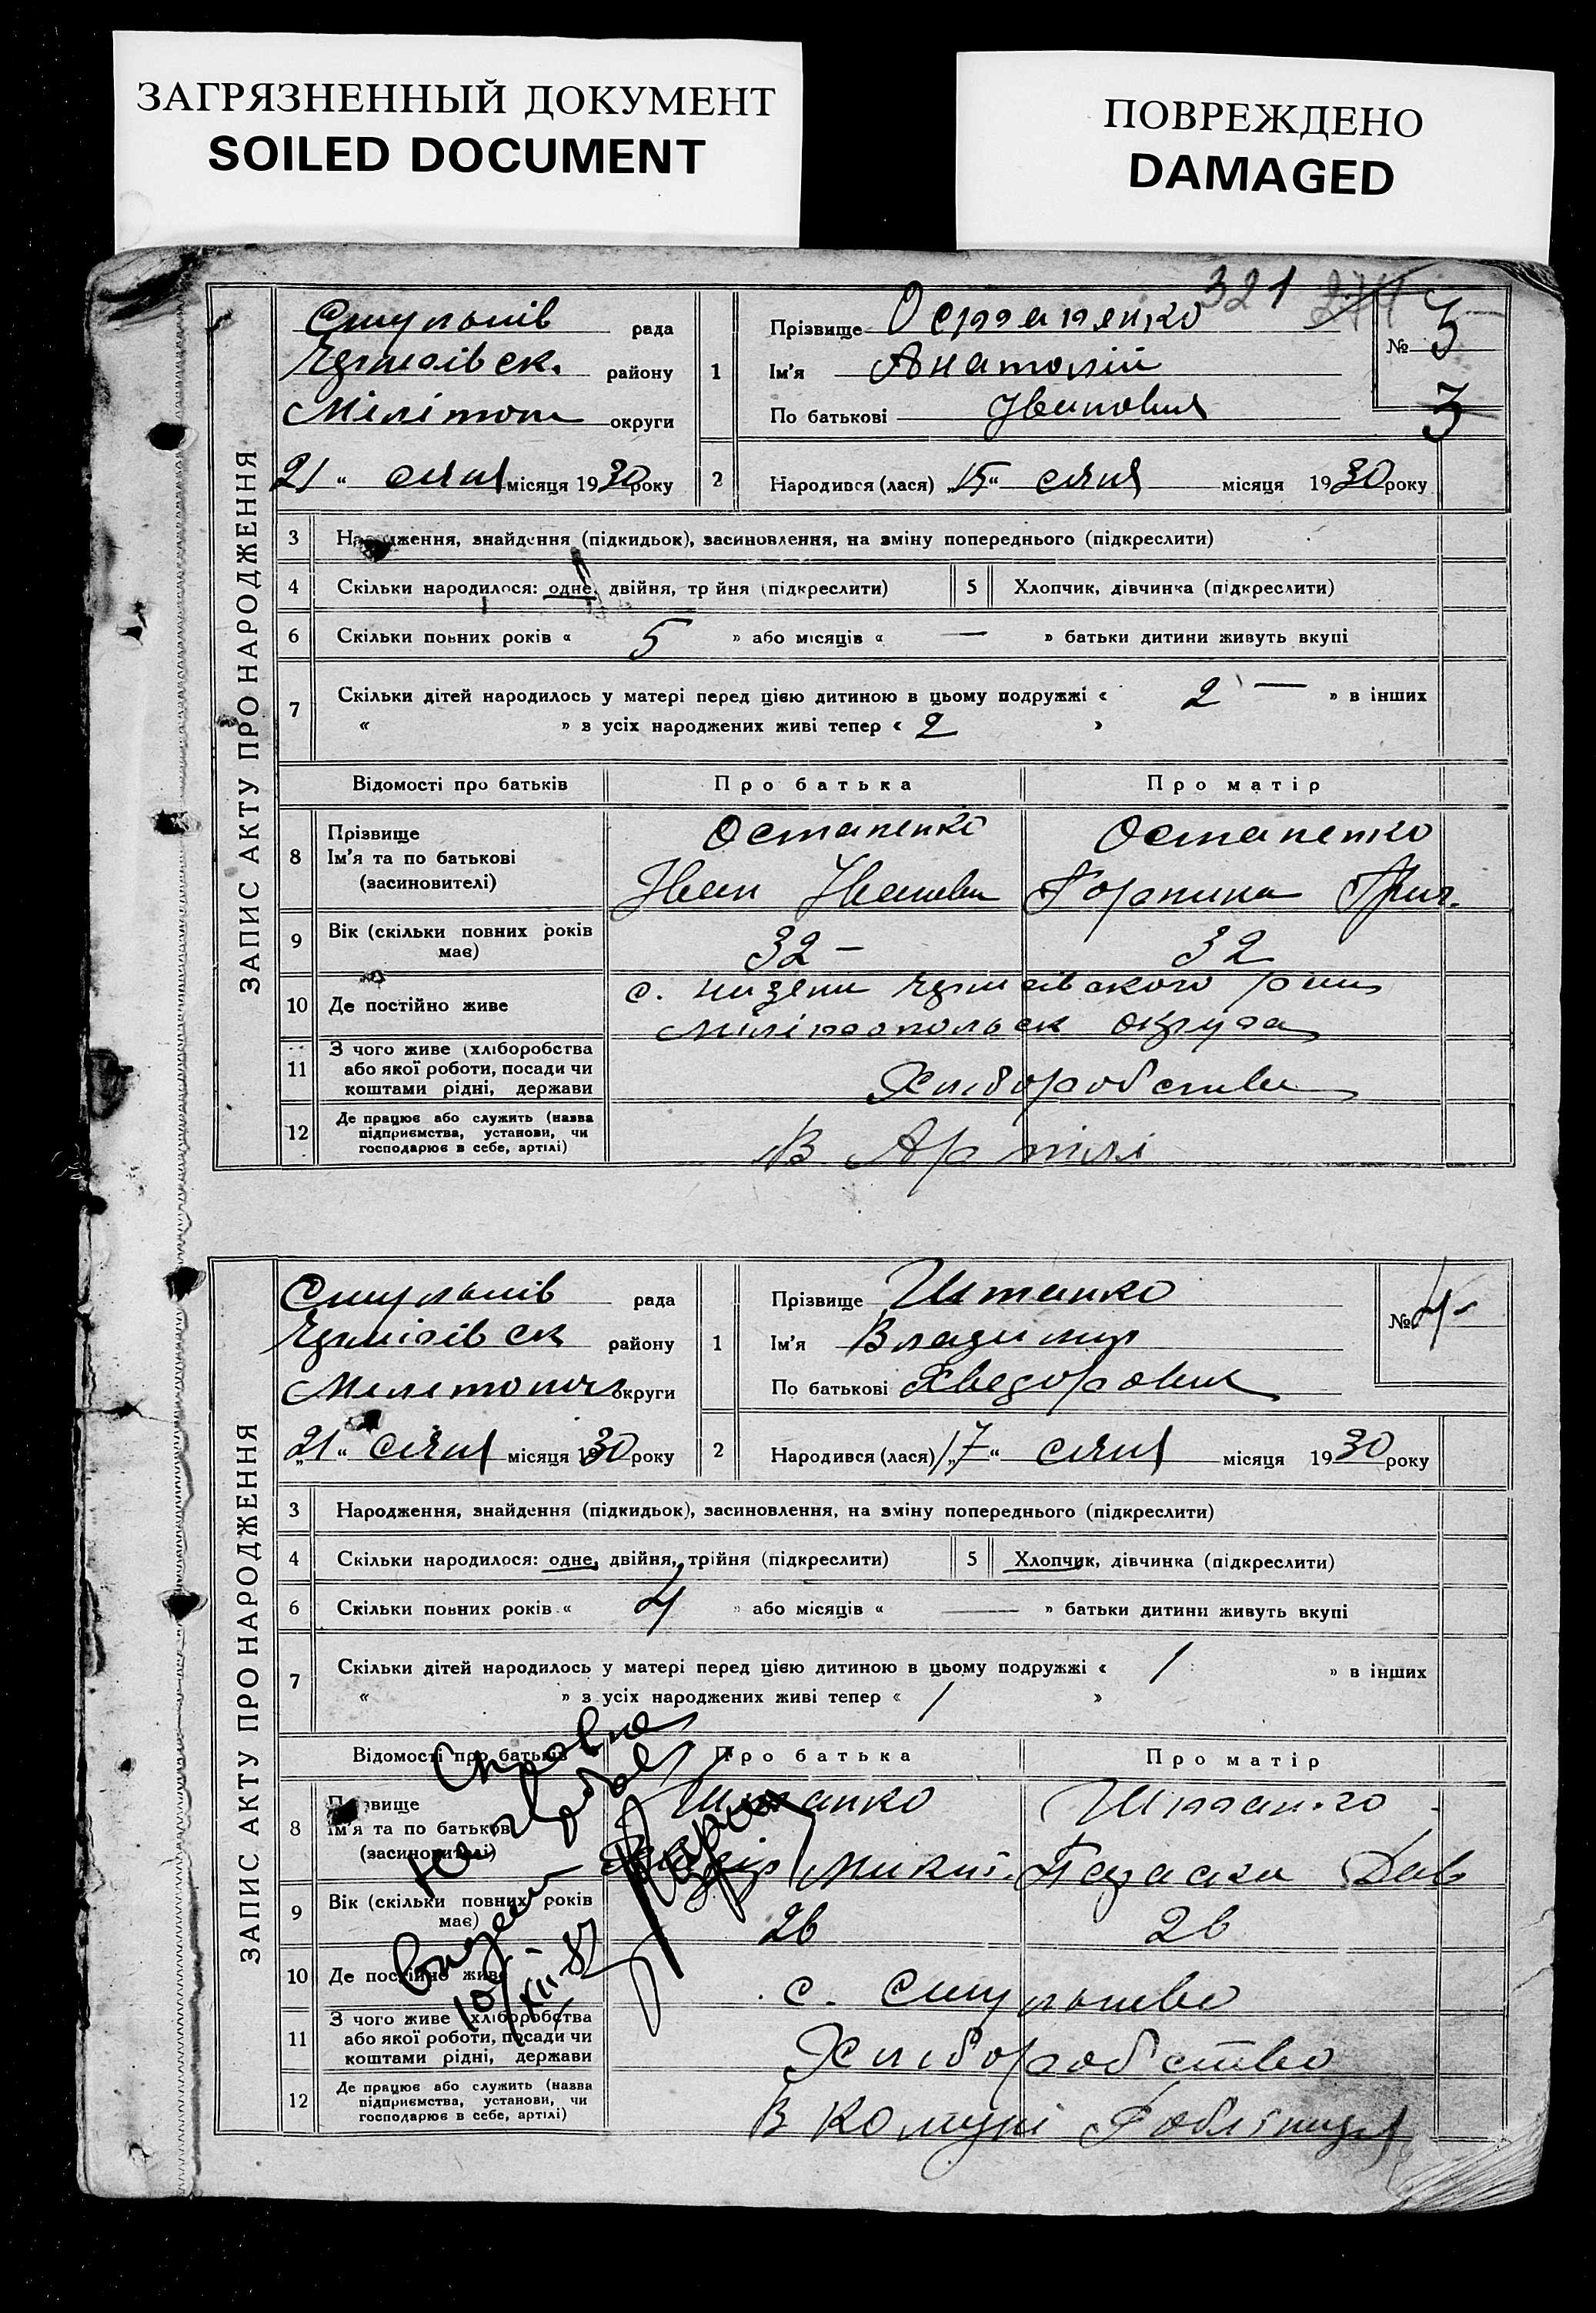 ЗАГРЯЗНЕННЫЙ ДОКУМЕНТ
SOILED DOCUMENT
ПОВРЕЖДЕНО
DAMAGED
321
ЗАПИС АКТУ ПРО НАРОДЖЕННЯ
рада
району
Мелітоп округи
21 " січня місяця 1930 року
1
Прізвище Остапенко
Ім'я Анатолій
По батькові Іванович
№ 3
3
2
Народився (лася) „15“ січня місяця 1930 року
3 Народження, знайдення (підкидьок), засиновлення, на зміну попереднього (підкреслити)
4 Скільки народилося: одне, двійня, трійня (підкреслити)
5 Хлопчик, дівчинка (підкреслити)
6 Скільки повних років « 5 » або місяців « — » батьки дитини живуть вкупі
7 Скільки дітей народилось у матері перед цією дитиною в цьому подружжі « 2 — » в інших
« » з усіх народжених живі тепер « 2 »
Відомості про батьків Про батька Про матір
8 Прізвище
Ім'я та по батькові
(засиновителі)
Остапенко
Іван Іванович
Остапенко
Горпина Григ.
9 Вік (скільки повних років має)
32 –
32
10 Де постійно живе
с.
округа
11 З чого живе (хліборобства
або якої роботи, посади чи
коштами рідні, держави
Хліборобство
12 Де працює або служить (назва
підприємства, установи, чи
господарює в себе, артілі)
В Артілі
ЗАПИС АКТУ ПРО НАРОДЖЕННЯ
рада
району
округи
„21“ січня місяця 1930 року
1
Прізвище Штанко
Ім'я Владимир
По батькові Хведорович
№ 4-
2
Народився (лася) „17“ січня місяця 1930 року
3 Народження, знайдення (підкидьок), засиновлення, на зміну попереднього (підкреслити)
4 Скільки народилося: одне, двійня, трійня (підкреслити)
5 Хлопчик, дівчинка (підкреслити)
6 Скільки повних років « 4 » або місяців « — » батьки дитини живуть вкупі
7 Скільки дітей народилось у матері перед цією дитиною в цьому подружжі « 1 » в інших
« » з усіх народжених живі тепер « 1 »
Відомості про батьків Про батька Про матір
8 Прізвище
Ім'я та по батькові
(засиновителі)
Штанко
Штанко
9 Вік (скільки повних років має)
26
26
10 Де постійно живе
с.
11 З чого живе (хліборобства
або якої роботи, посади чи
коштами рідні, держави
Хліборобство
12 Де працює або служить (назва
підприємства, установи, чи
господарює в себе, артілі)
В Комуні